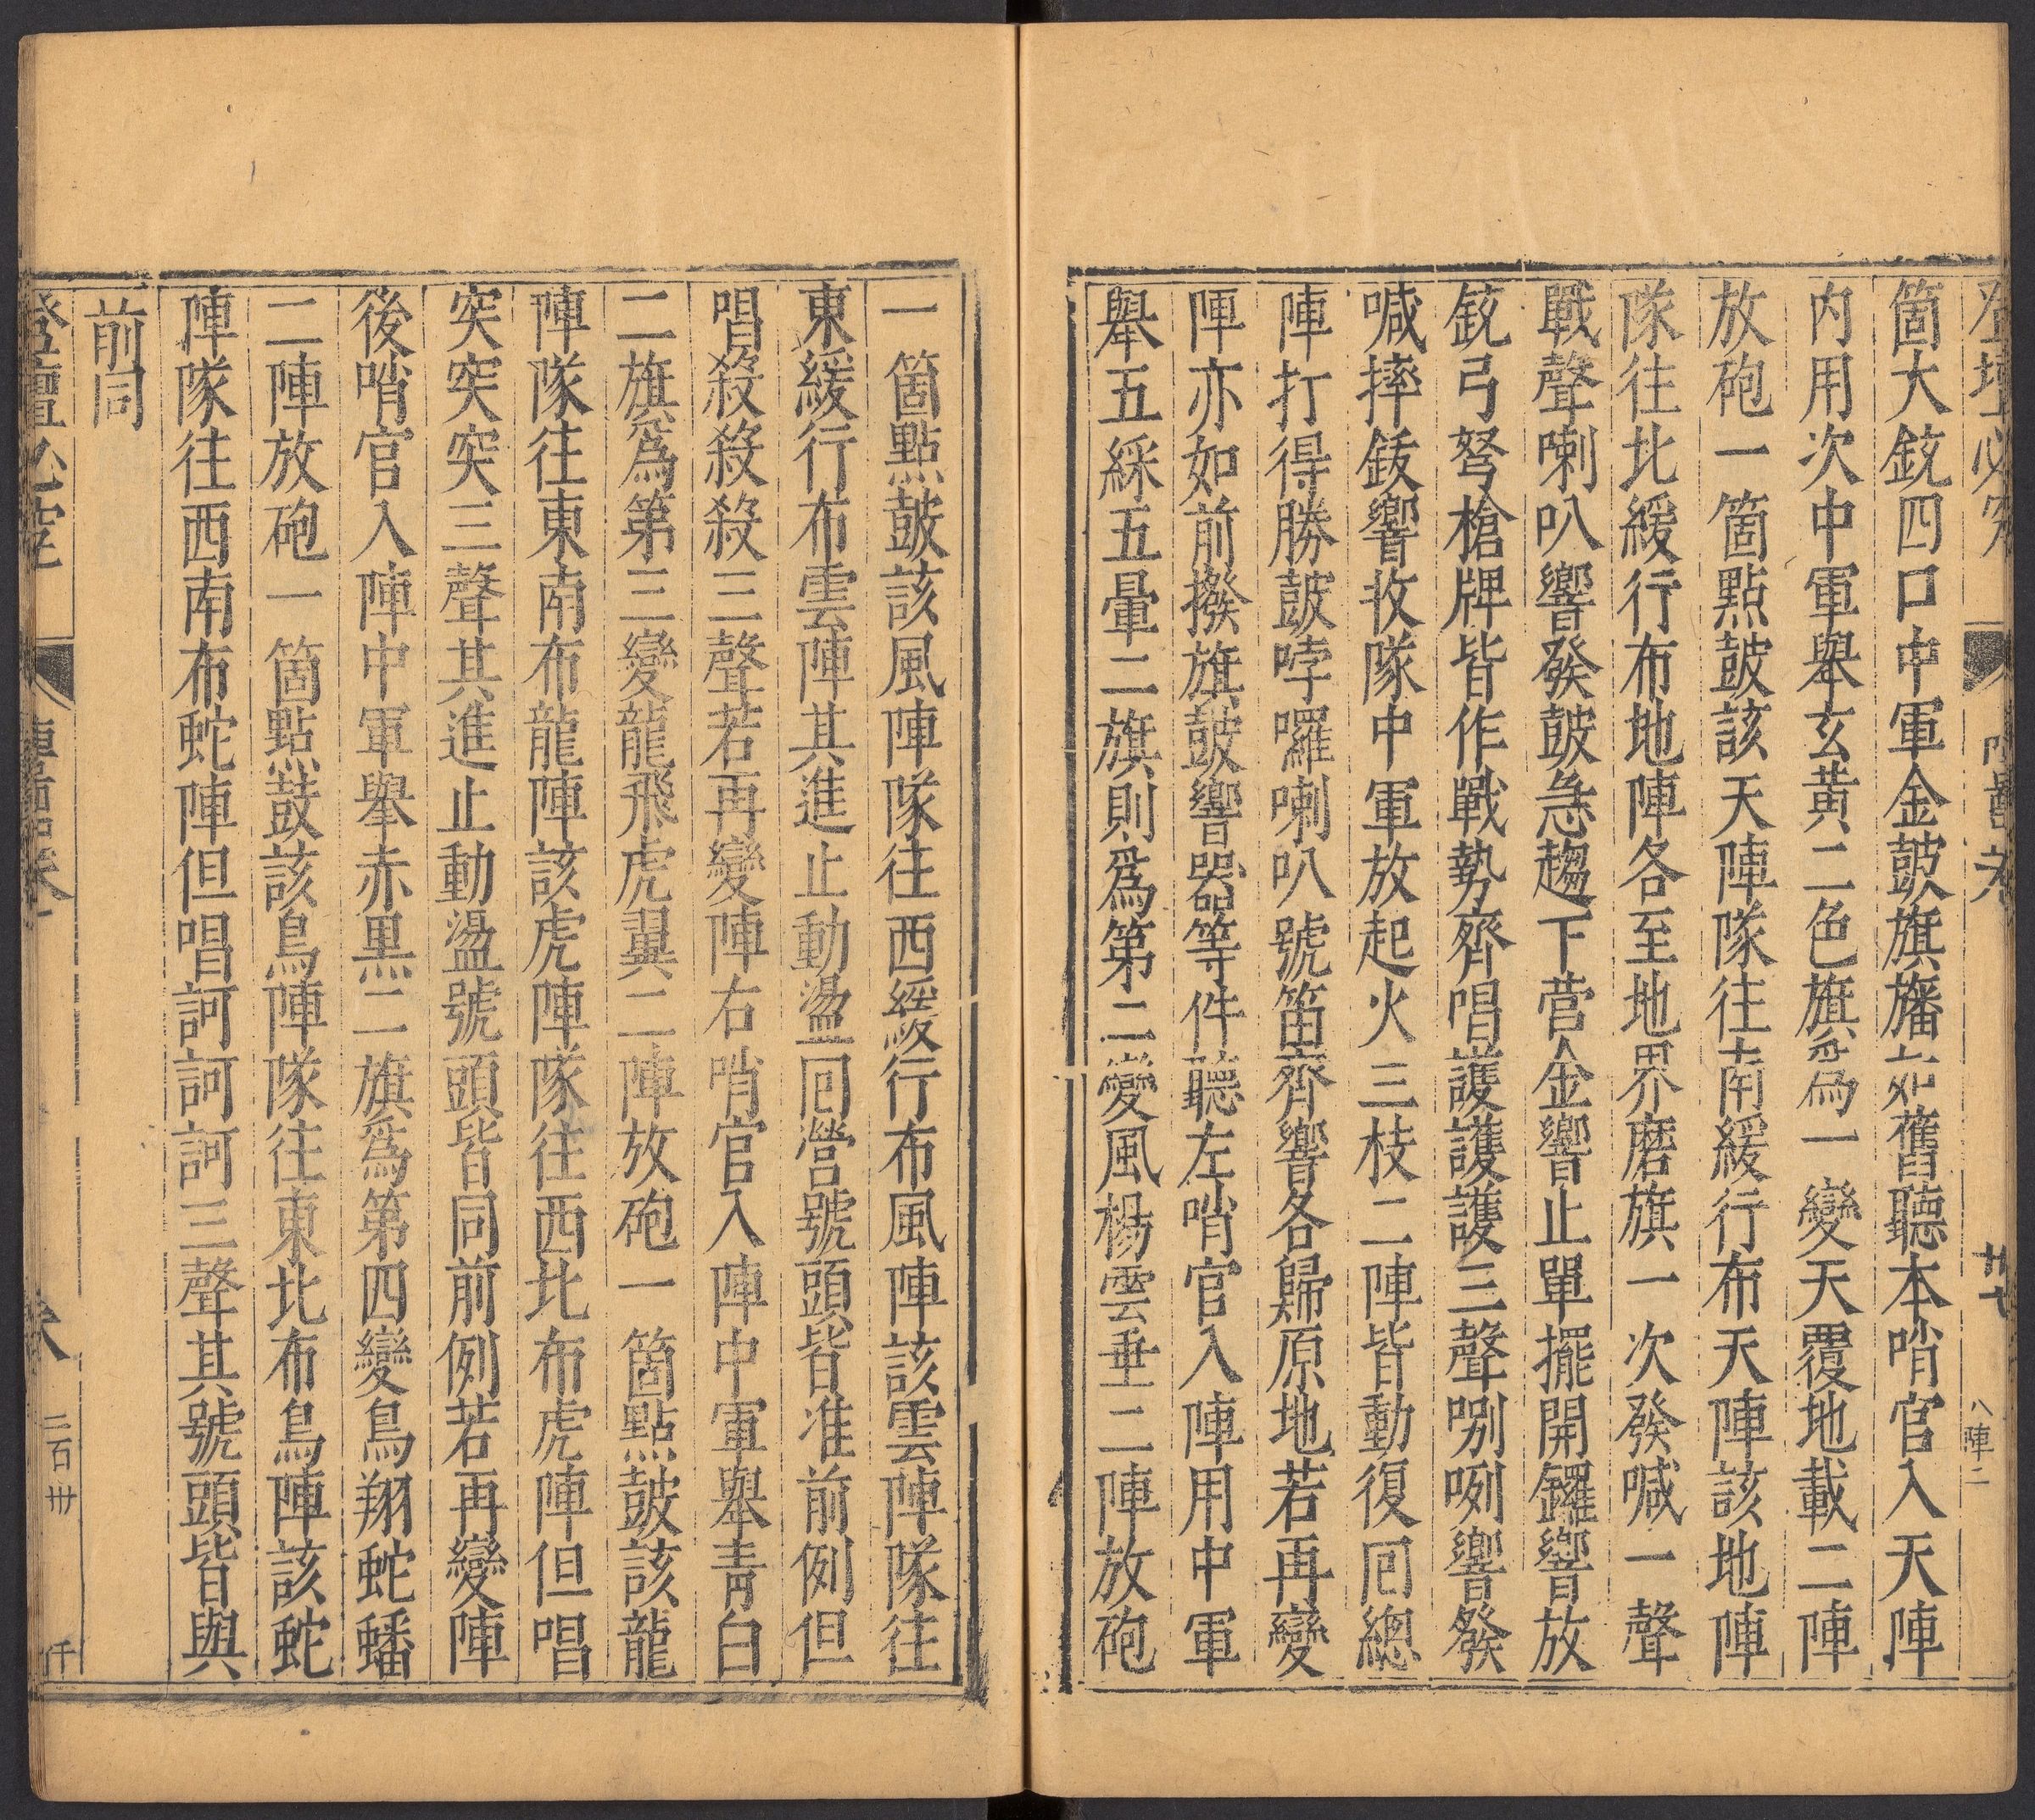 箇大銃四口中軍金皷旗旛如舊聽本哨官入天陣
内用次中軍舉玄黃二色旗爲一變天覆地載二陣
放砲一箇點皷該天陣隊往南緩行布天陣該地陣
隊往北緩行布地陣各至地界磨旗一次發喊一聲
戰聲喇叭響發皷急趨下營金響止單擺開鑼響放
銃弓弩槍牌皆作戰勢齊唱護護護三聲咧咧響發
喊摔鈸響收隊中軍放起火三枝二陣皆動復囘總
陣打得勝皷哱囉喇叭號笛齊響各歸原地若再變
陣亦如前撥旗皷響器等件聽左哨官入陣用中軍
舉五綵五暈二旗則爲第二變風楊雲垂二陣放砲
一箇點皷該風陣隊往西緩行布風陣該雲陣隊往
東緩行布雲陣其進止動盪囘營號頭皆准前例但
唱殺殺殺三聲若再變陣右哨官入陣中軍舉青白
二旗爲第三變龍飛虎翼二陣放砲一箇點皷該龍
陣隊往東南布龍陣該虎陣隊往西北布虎陣但唱
突突突三聲其進止動盪號頭皆同前例若再變陣
後哨官入陣中軍舉赤黑二旗爲第四變鳥翔蛇蟠
二陣放砲一箇點鼓該鳥陣隊往東北布鳥陣該蛇
陣隊往西南布蛇陣但唱訶訶訶三聲其號頭皆與
前同
八陣二
二百卅